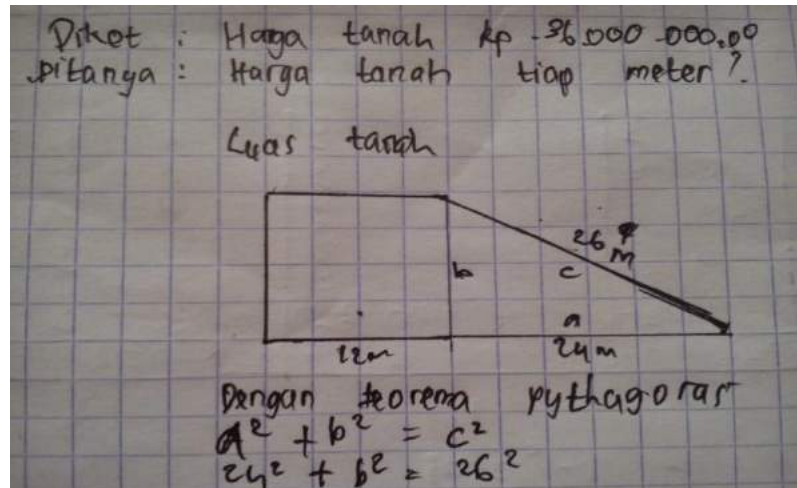 Diket : Harga tanah Rp .36.000.000.00
Ditanya : Harga tanah tiap meter?
Luas tanah
26 m
b
c
a
12m
24m
Dengan teorema pythagoras
a² + b² = c²
24² + b² = 26²